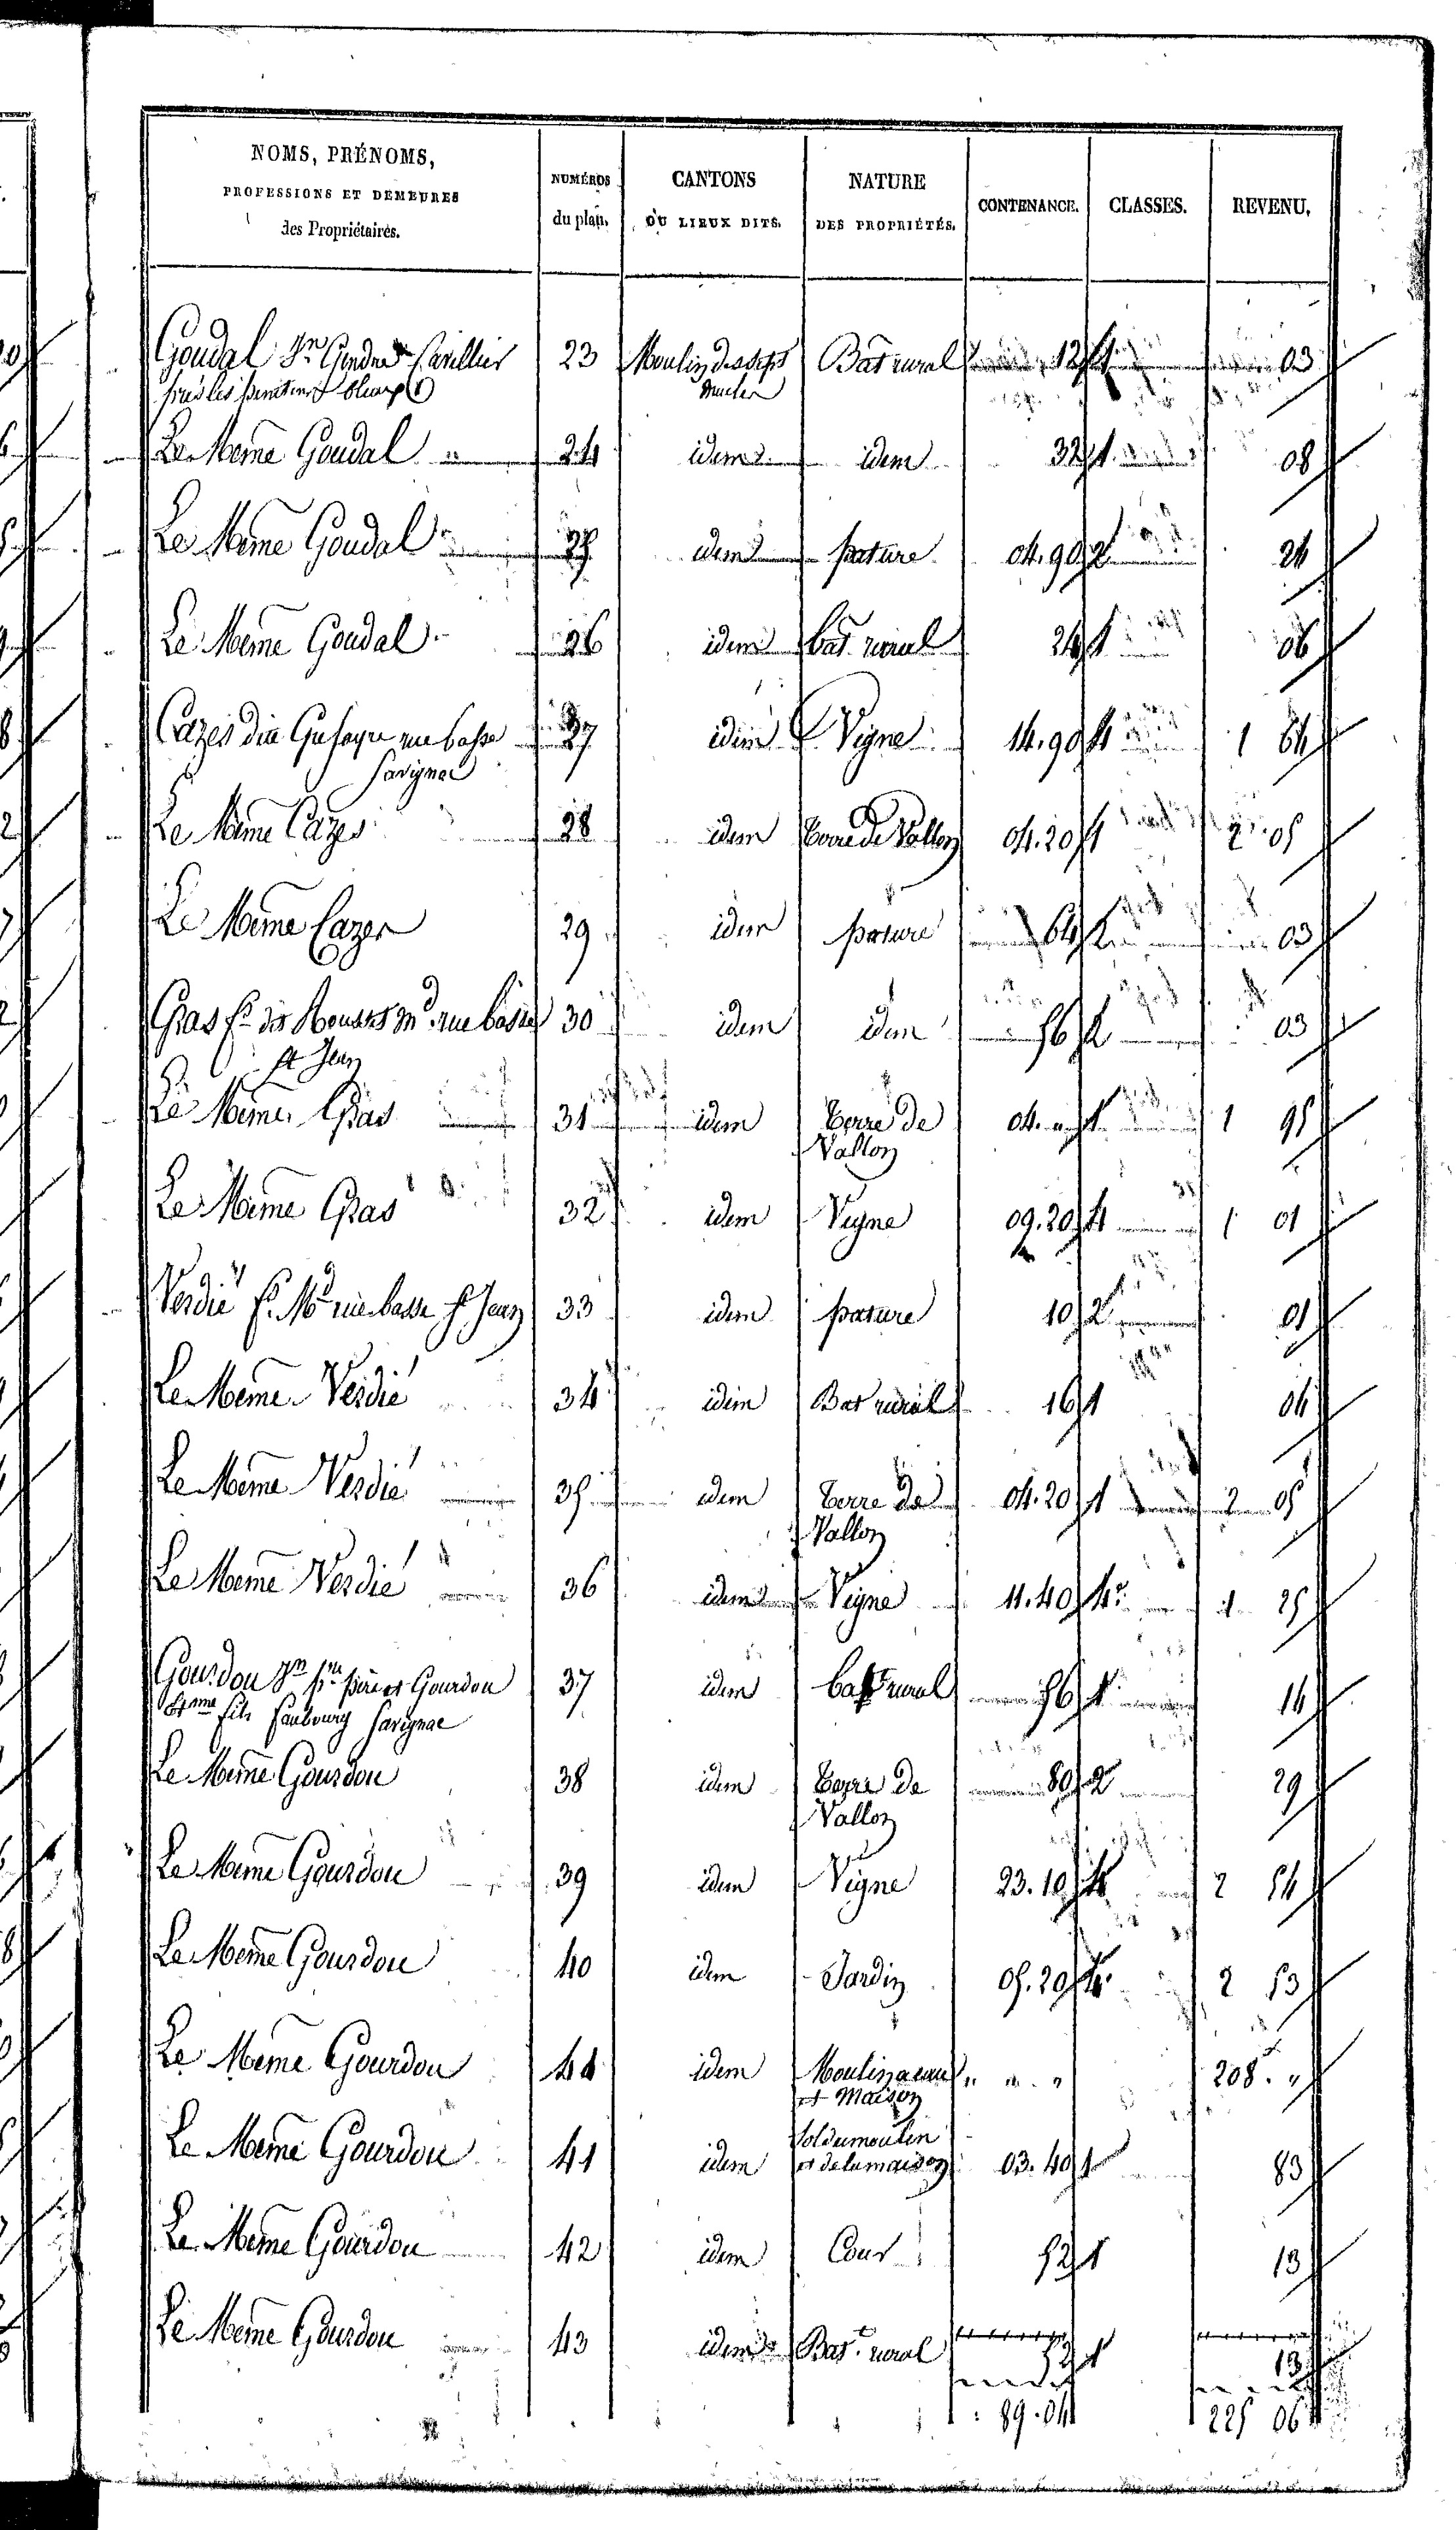 NOMS, PRÉNOMS, PROFESSIONS ET DEMEURES des Propriétaires. NUMÉROS du plan. CANTONS OU LIEUX DITS. NATURE DES PROPRIÉTÉS. CONTENANCE. CLASSES. REVENU.
Goudal Jn Gendre 23 Moulin des sept Bat rural 12 1 03
près les
Le Meme Goudal 24 idem idem 32 1 08
Le Meme Goudal 25 idem pature 04.90 2 24
Le Meme Goudal 26 idem bat rural 24 1 06
Cazes dit rue basse 27 idem Vigne 14.90 4 1 64
Savignac
Le Meme Cazes 28 idem terre de Vallon 04.20 1 2 05
Le Meme Cazes 29 idem pature 64 2 03
Gras fs des Md rue basse 30 idem idem 56 2 03
St Jean
Le Meme Gras 31 idem terre de 04. " 1 1 95
Vallon
Le Meme Gras 32 idem Vigne 09.20 4 1 01
Verdié fs Md rue basse St Jean 33 idem pature 10 2 01
Le Meme Verdié 34 idem Bat rural 16 1 04
Le Meme Verdié 35 idem terre de 04.20 1 2 05
Vallon
Le Meme Verdié 36 idem Vigne 11.40 4 1 25
Gourdon Jn père et Gourdon 37 idem bat rural 56 1 14
fils faubourg Savignac
Le Meme Gourdon 38 idem terre de 80 2 29
Vallon
Le Meme Gourdon 39 idem Vigne 23.10 4 2 54
Le Meme Gourdon 40 idem Jardin 05.20 4 2 53
Le Meme Gourdon 41 idem Moulin a eau " " " 208. "
et Maison
Le Meme Gourdon 41 idem Sol du moulin 03.40 1 83
et de la maison
Le Meme Gourdon 42 idem Cour 52 1 13
Le Meme Gourdon 43 idem Bat. rural 52 1 13
89.04 225 06